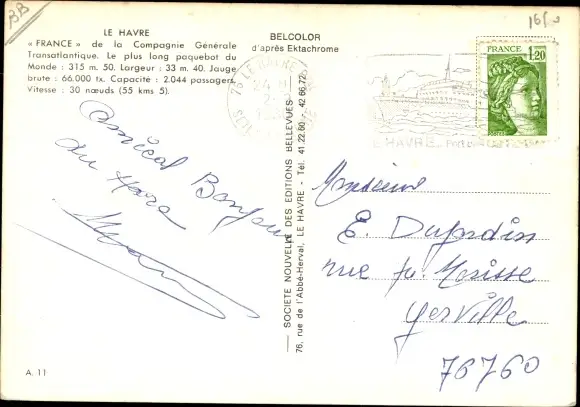 BB
16F0
LE HAVRE
« FRANCE » de la Compagnie Générale
Transatlantique. Le plus long paquebot du
Monde : 315 m. 50. Largeur : 33 m. 40. Jauge
brute : 66.000 tx. Capacité : 2.044 passagers.
Vitesse : 30 nœuds (55 kms 5).
BELCOLOR
d'après Ektachrome
76 LE HAVRE
24 H
FRANCE
1,20
LE HAVRE
Amical Bonjour
du Havre
SOCIETE NOUVELLE DES EDITIONS BELLEVUES
76, rue de l'Abbé-Herval, LE HAVRE - Tél. 41.22.60 - 42.66.72
Monsieur
E. Dujardin
rue
Yerville
76760
A. 11